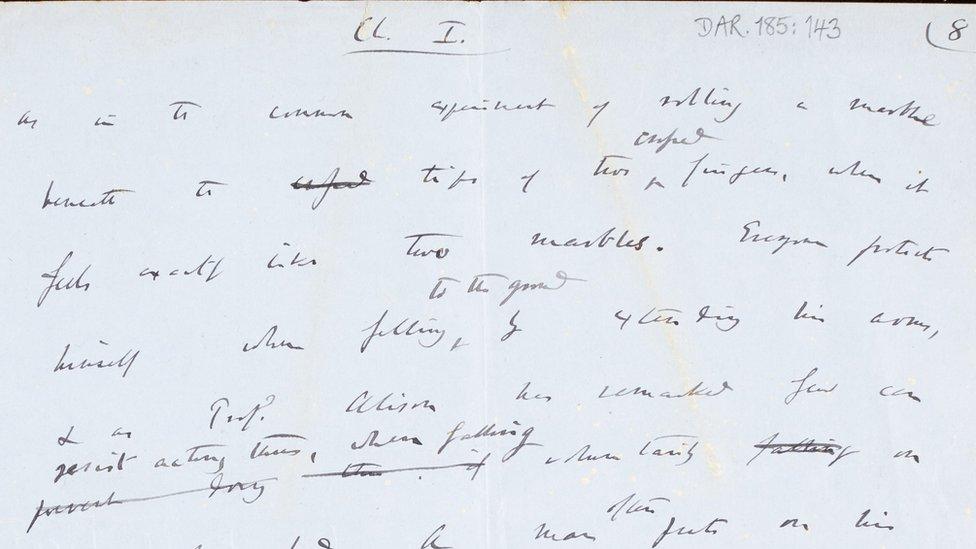 Ch. I. DAR.185:143 (8
as in the common experiment of rolling a marble
crossed
beneath the crossed tips of two ^ fingers, when it
feels exactly like two marbles. Everyone protects
to the ground
himself when falling ^ by extending his arms,
& as Prof. Alison has remarked few can
resist acting thus, when falling
prevent doing this if voluntarily falling on
A man often puts on his